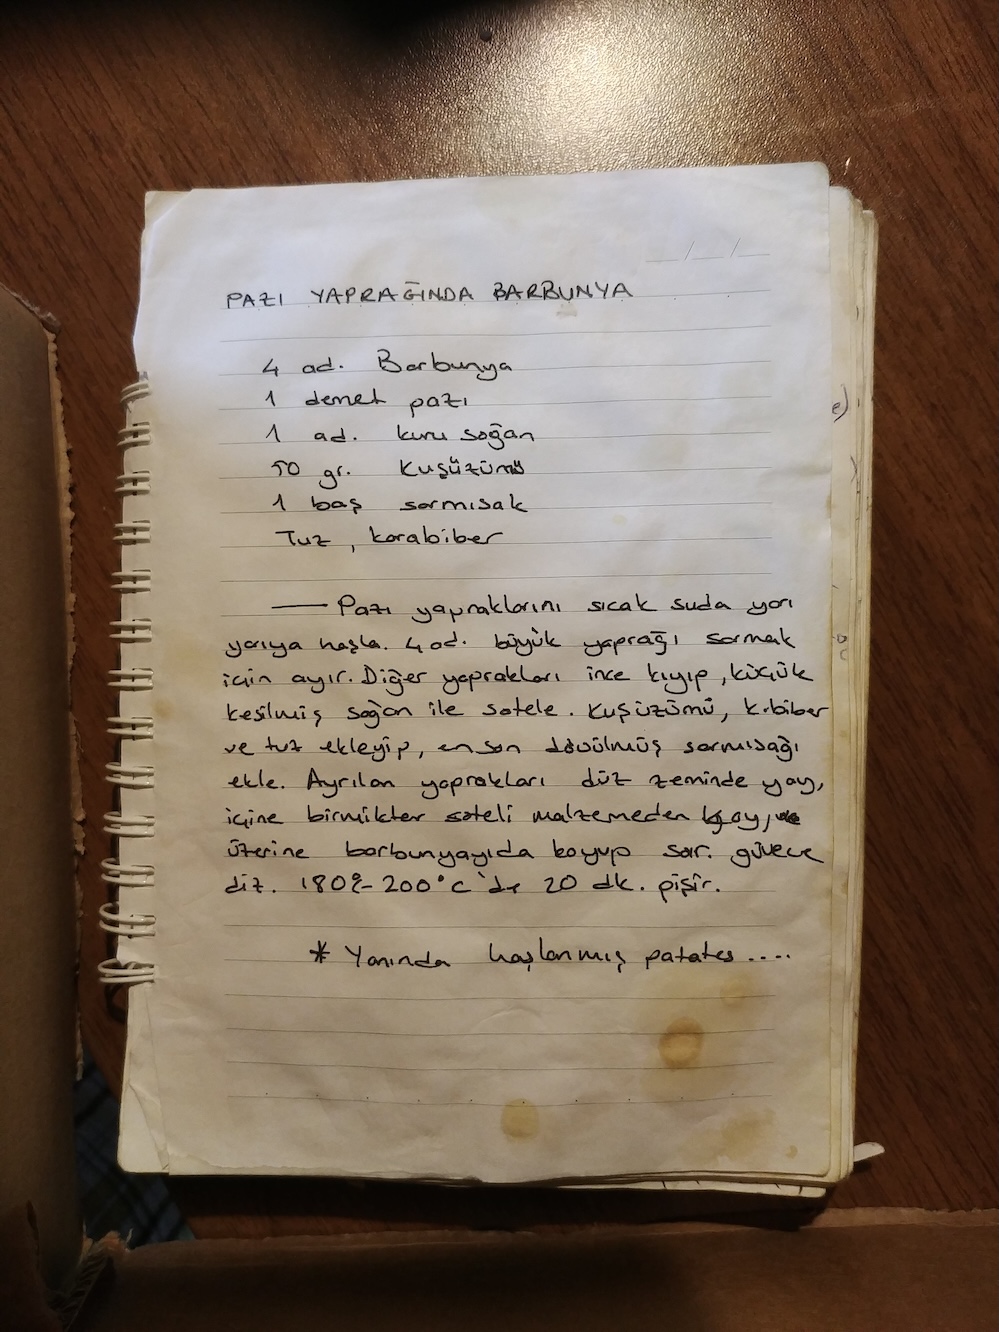 PAZI YAPRAĞINDA BARBUNYA
4 ad. Barbunya
1 demet pazı
1 ad. kuru soğan
50 gr. Kuşüzümü
1 baş sarmısak
Tuz, karabiber
— Pazı yapraklarını sıcak suda yarı
yarıya haşla. 4 ad. büyük yaprağı sarmak
için ayır. Diğer yaprakları ince kıyıp, küçük
kesilmiş soğan ile sotele. Kuşüzümü, k.biber
ve tuz ekleyip, en son dövülmüş sarmısağı
ekle. Ayrılan yaprakları düz zeminde yay,
içine birmiktar soteli malzemeden koy,
üzerine barbunyayıda koyup sar. güvece
diz. 180°-200°C'de 20 dk. pişir.
* Yanında haşlanmış patates ....